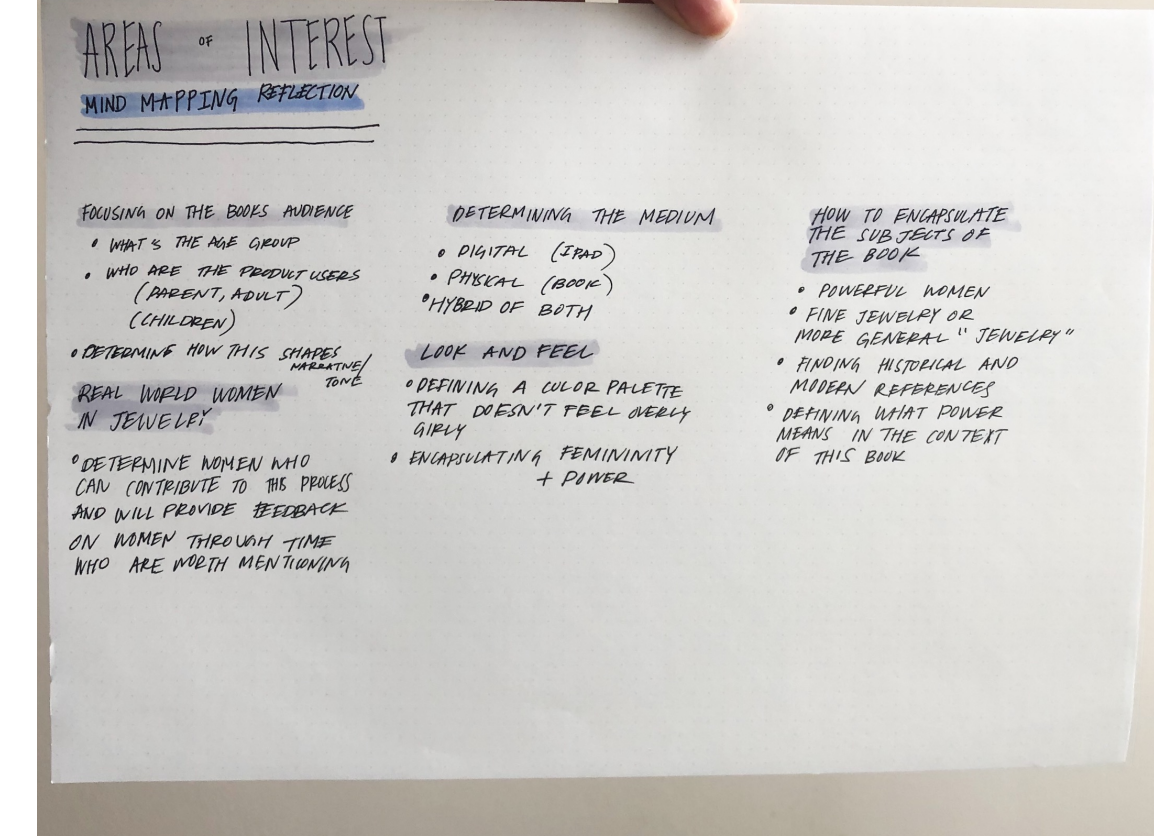 AREAS OF INTEREST
MIND MAPPING REFLECTION
FOCUSING ON THE BOOKS AUDIENCE
• WHAT'S THE AGE GROUP
• WHO ARE THE PRODUCT USERS
(PARENT, ADULT)
(CHILDREN)
• DETERMINE HOW THIS SHAPES
NARRATIVE/
TONE
REAL WORLD WOMEN
IN JEWELRY
• DETERMINE WOMEN WHO
CAN CONTRIBUTE TO THIS PROCESS
AND WILL PROVIDE FEEDBACK
ON WOMEN THROUGH TIME
WHO ARE WORTH MENTIONING
DETERMINING THE MEDIUM
• DIGITAL (IPAD)
• PHYSICAL (BOOK)
• HYBRID OF BOTH
LOOK AND FEEL
• DEFINING A COLOR PALETTE
THAT DOESN'T FEEL OVERLY
GIRLY
• ENCAPSULATING FEMININITY
+ POWER
HOW TO ENCAPSULATE
THE SUBJECTS OF
THE BOOK
• POWERFUL WOMEN
• FINE JEWELRY OR
MORE GENERAL "JEWELRY"
• FINDING HISTORICAL AND
MODERN REFERENCES
• DEFINING WHAT POWER
MEANS IN THE CONTEXT
OF THIS BOOK